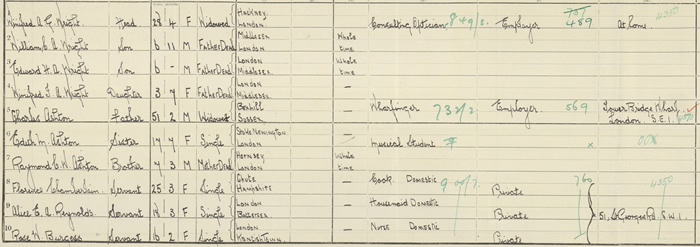 Winifred A. G. Wright Head 28 4 F Widowed Hackney London Consulting Optician 849/2. Employer 489 At home
2 William A. Wright Son 6 11 M Father Dead Middlesex London Whole time
3 Edward H. A. Wright Son 6 - M Father Dead London Middlesex Whole time
4 Winifred J. A. Wright Daughter 3 7 F Father Dead London Middlesex —
5 Charles Ashton Father 51 2 M Widowed Bexhill Sussex — Wharfinger 732/2. Employer 569 Tower Bridge Wharf, London S.E.1.
6 Edith M. Ashton Sister 17 7 F Single Stoke Newington London — Musical Student x
7 Raymond C. W. Ashton Brother 7 3 M Mother Dead Hornsey London Whole time
8 Florence Chamberlain Servant 25 3 F Single Chute Hampshire — Cook Domestic 900/7. Private 760
9 Alice E. A. Reynolds Servant 18 3 F Single London Battersea — Housemaid Domestic Private 51, St Georges Rd. S.W.1.
10 Rose W. Burgess Servant 16 2 F Single London Kentish Town — Nurse Domestic Private